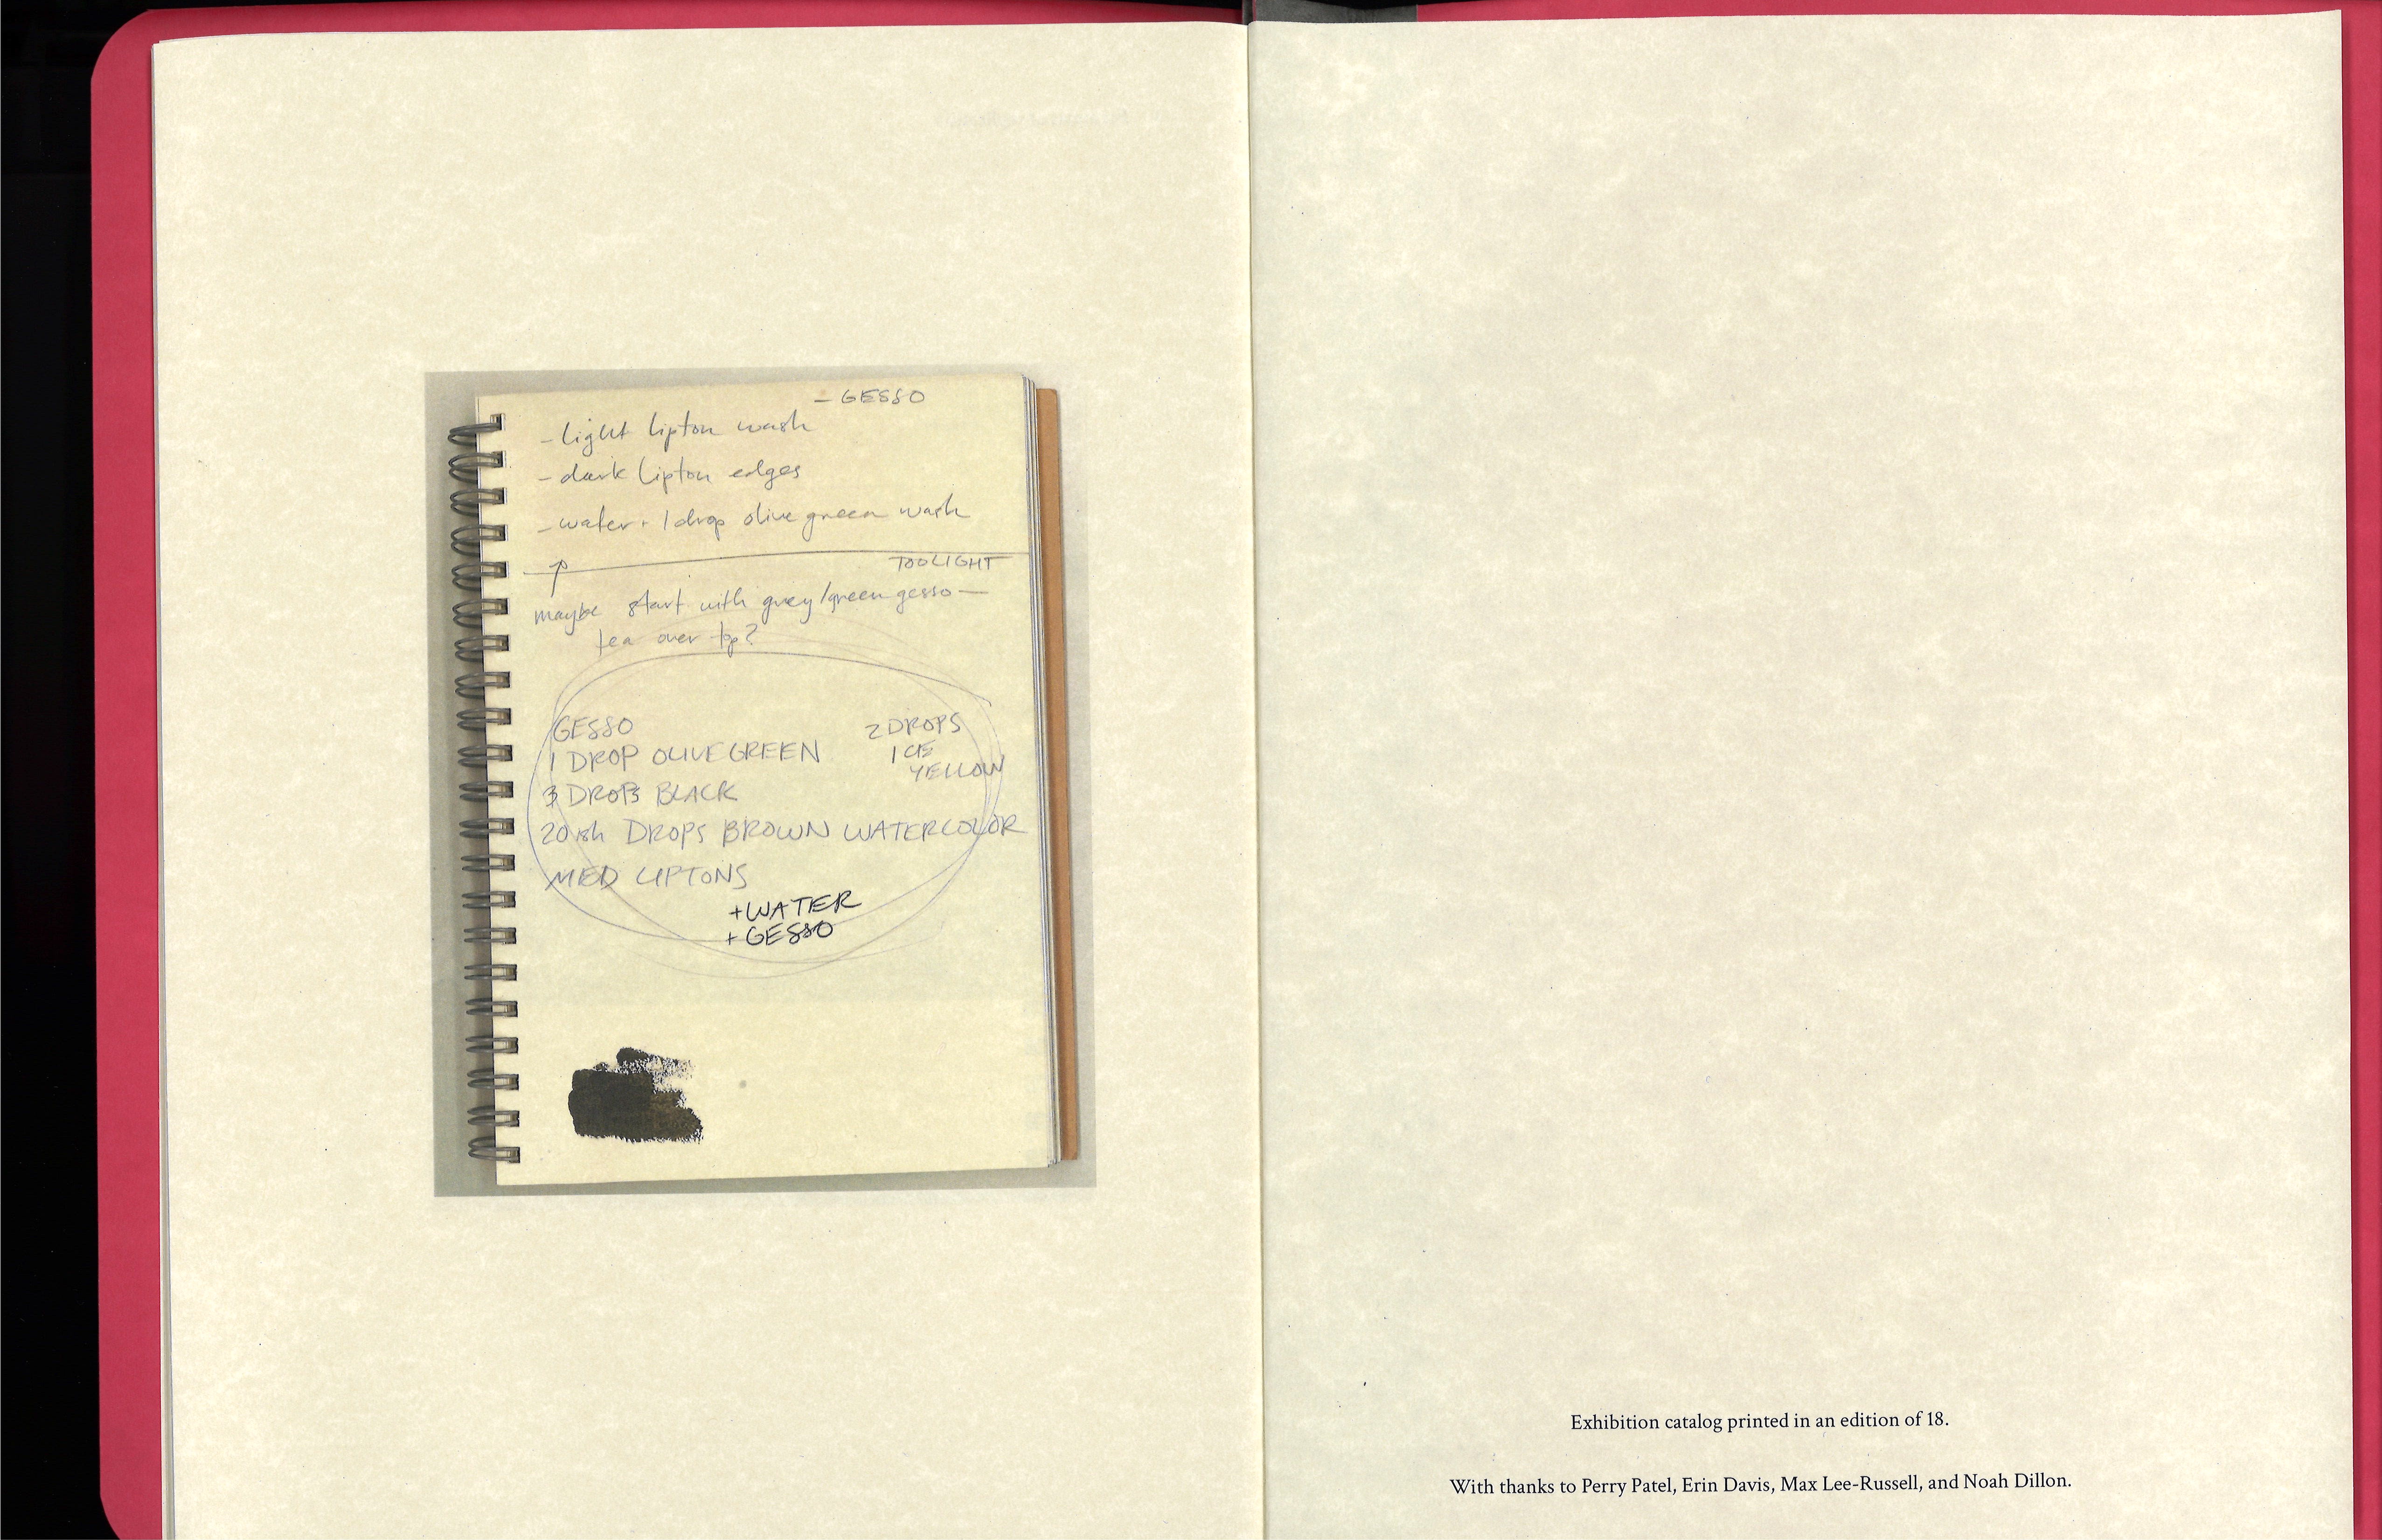 – GESSO
– light lipton wash
– dark lipton edges
– water + 1 drop olive green wash
TOO LIGHT
maybe start with grey/green gesso —
tea over top?
GESSO
1 DROP OLIVE GREEN
3 DROPS BLACK
20ish DROPS BROWN WATERCOLOR
MED LIPTONS
2 DROPS
ICE
YELLOW
+ WATER
+ GESSO
Exhibition catalog printed in an edition of 18.
With thanks to Perry Patel, Erin Davis, Max Lee-Russell, and Noah Dillon.